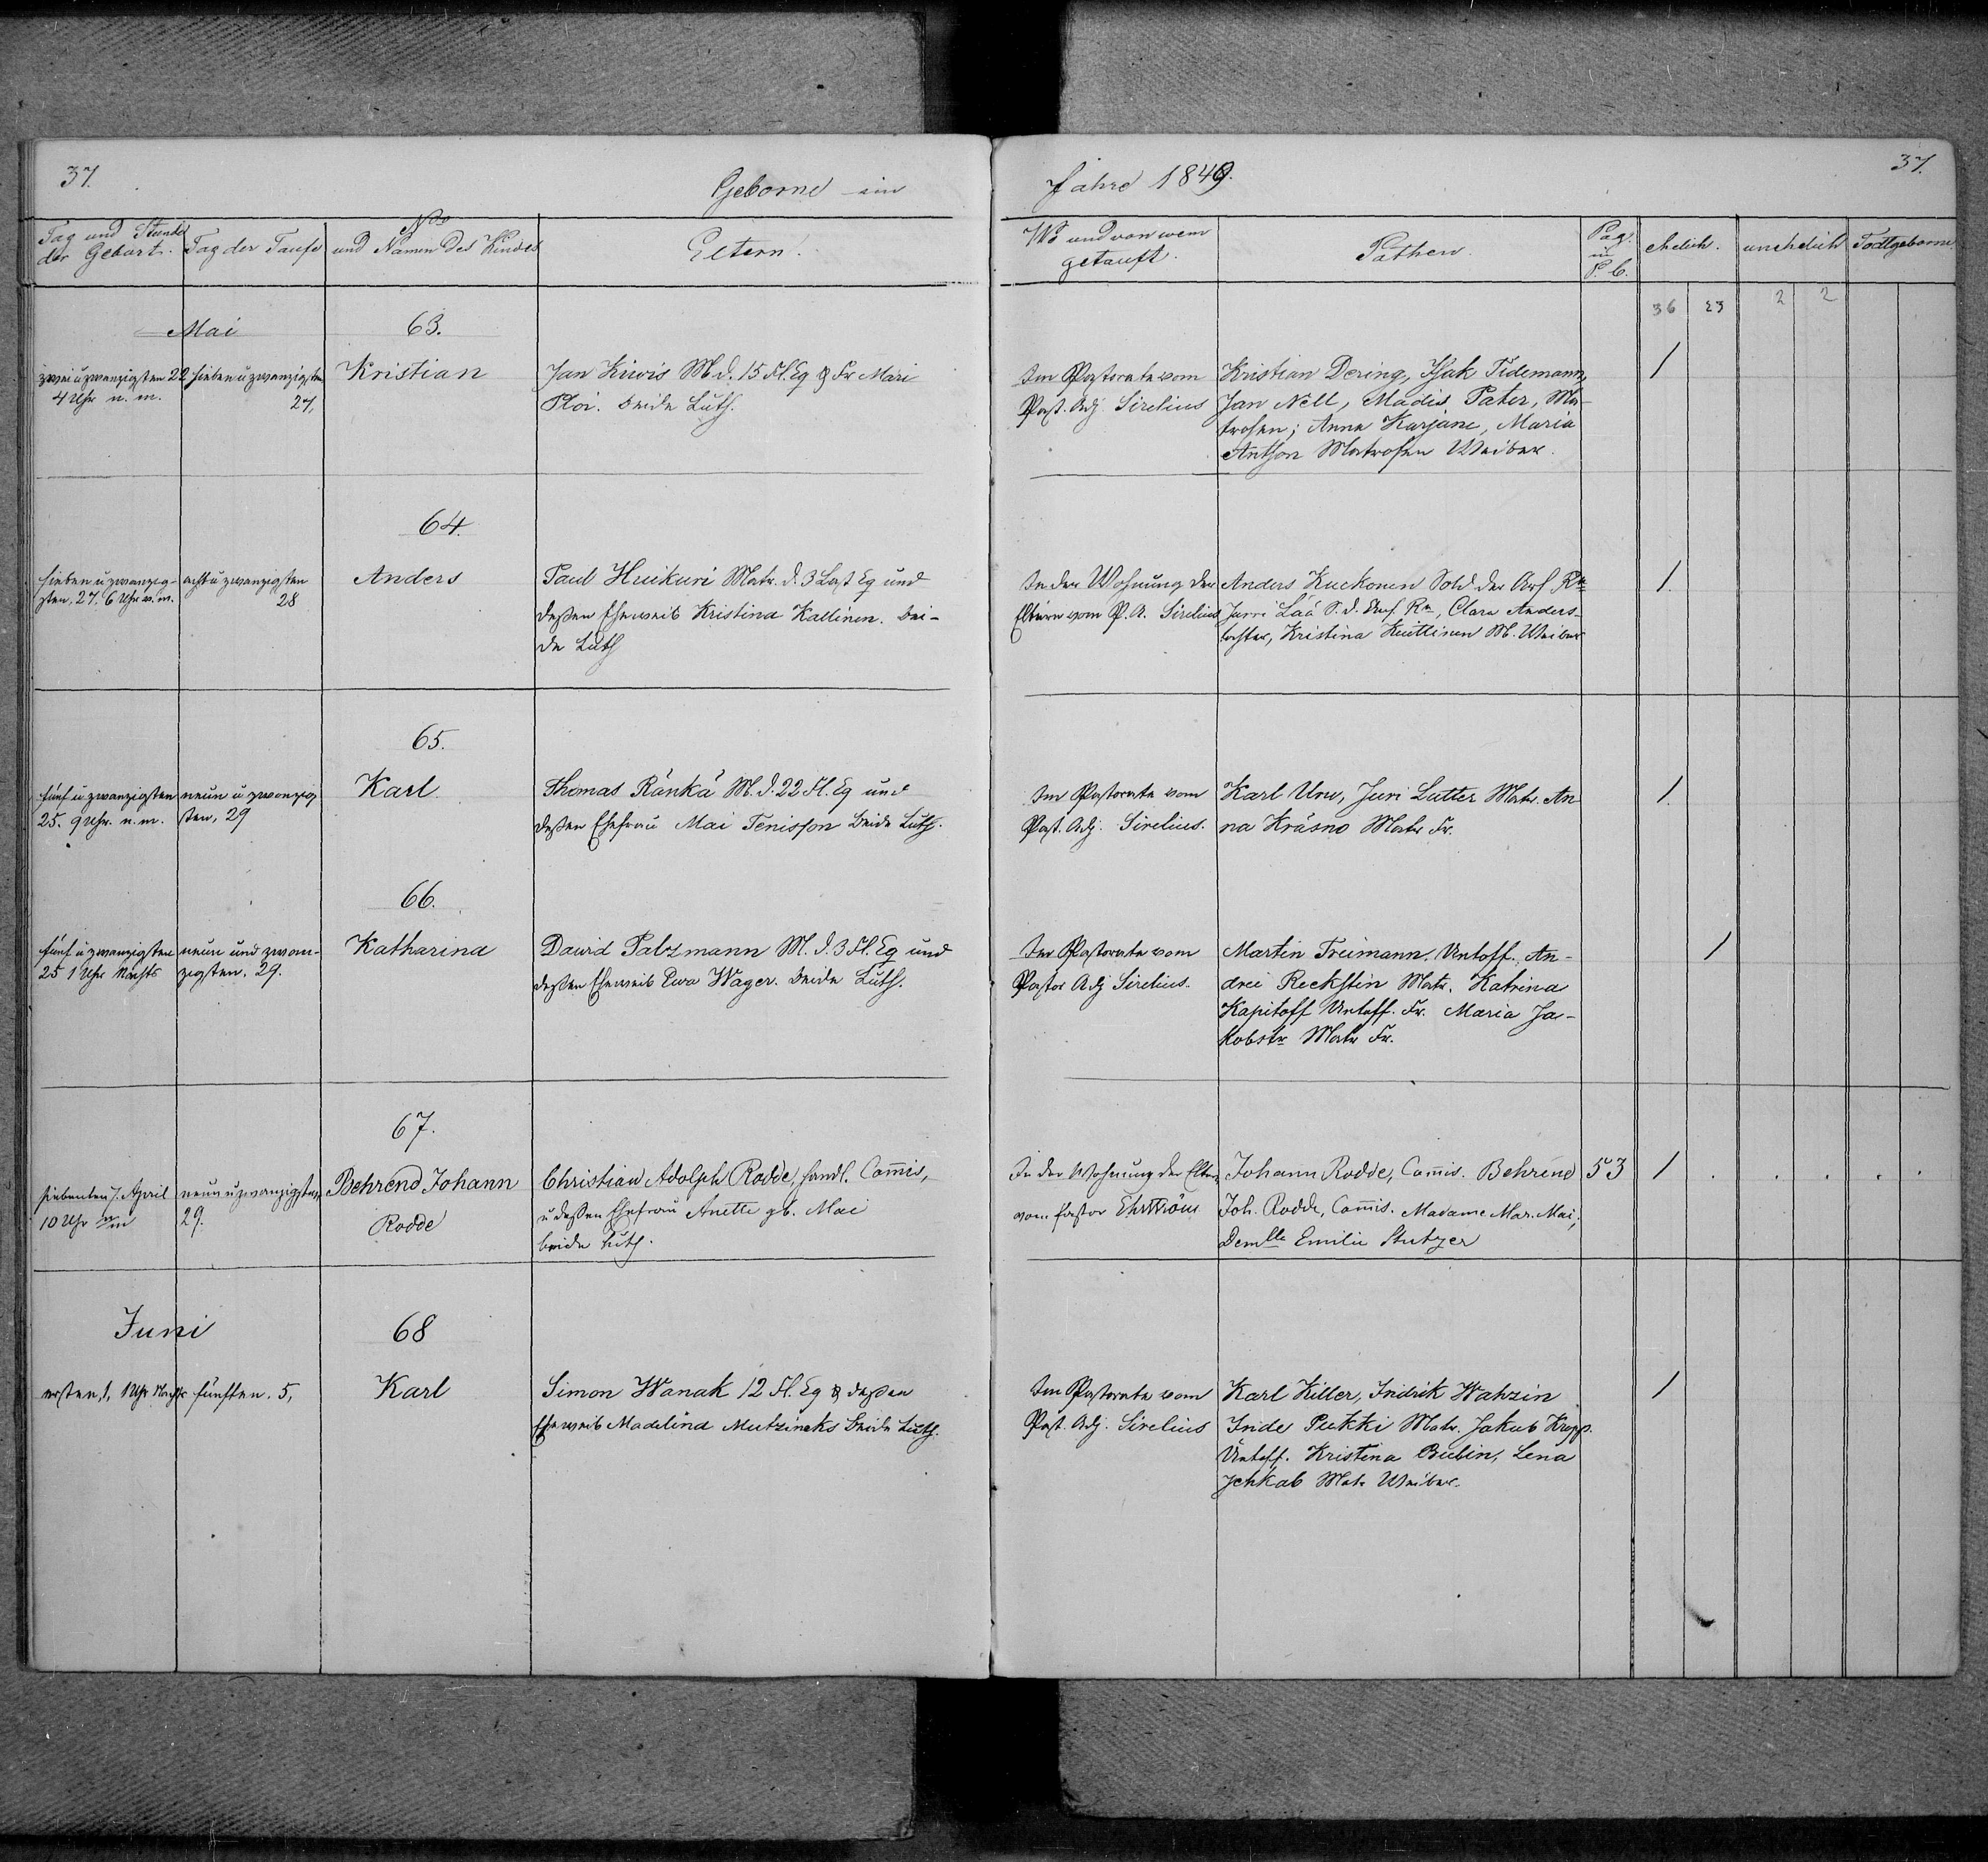 37.
Geborne im
Tag und Stunde
der Geburt.
Tag der Taufe
No
und Namen des Kindes
Eltern.
Mai
63.
zwei u zwanzigsten 22
4 Uhr n. m.
sieben u zwanzigsten
27,
Kristian
Jan Kiwis M d. 15 Fl. Eq & Fr Mari
Ploi. beide Luth.
64.
sieben u zwanzig-
sten, 27. 6 Uhr v. m.
acht u zwanzigsten
28
Anders
Paul Huikuri Matr. d. 3 Last Eq und
deßen Eheweib Kristina Kallinen. bei-
de Luth
65.
fünf u zwanzigsten
25. 9 Uhr. n. m.
neun u zwanzig
sten, 29
Karl
Thomas Ränkä M. d. 22 Fl. Eq und
deßen Ehefrau Mai Tenisson beide Luth.
66.
fünf u zwanzigsten
25 1 Uhr Nachts
neun und zwan-
zigsten. 29.
Katharina
Dawid Patzmann M. d. 3 Fl. Eq und
deßen Eheweib Ewa Wager. beide Luth.
67.
siebenten 7. April
10 Uhr
neun u zwanzigsten
29.
Behrend Johann
Rodde
Christian Adolph Rodde, handl. Com̄is,
u deßen Ehefrau Anette gb. Mai
beide luth.
Juni
68
ersten, 1, 1 Uhr Nachts
fünften. 5,
Karl
Simon Wanak 12 Fl. Eq & deßen
Eheweib Madelina Mutzineks beide Luth.
37.
Jahre 1849.
Wo und von wem
getauft.
Pathen
Pag.
in
P. b.
ehelich.
unehelich
Todtgeborne
36 23 2 2
Im Pastorate vom
Past. Adj. Sirelius
Kristian Dering, Isak Tidemann,
Jan Nell, Madis Pater, Ma-
trosen; Anna Karjane, Maria
Antson Matrosen Weiber.
1
In der Wohnung der
Eltern vom P. A. Sirelius
Anders Kuckonen Sold. der Arf Rn
Jurri Lää S. d. Arf. Rn, Clara Anders-
tochter, Kristina Kuittinen M. Weiber
1.
Im Pastorate vom
Past. Adj. Sirelius.
Karl Urw, Juri Lutter Matr. An
na Kräsno Matr Fr.
1.
Im Pastorate vom
Pastor Adj Sirelius.
Martin Treimann. Untoff. An-
drei Reckstin Matr. Katrina
Kapitoff Untoff. Fr. Maria Ja-
kobstr Matr Fr.
1
In der Wohnung der Eltern
vom Pastor Ehrström
Johann Rodde, Com̄is. Behrend
Joh. Rodde, Com̄is. Madame Mar. Mai,
Demlle Emilie Stutzer
53
1 . . . .
Im Pastorate vom
Past. Adj. Sirelius
Karl Killer, Indrik Wahzin
Inde Pukki Matr. Jakub Kropp.
Untoff. Kristina Bubin, Lena
Jehkab Matr Weiber.
1